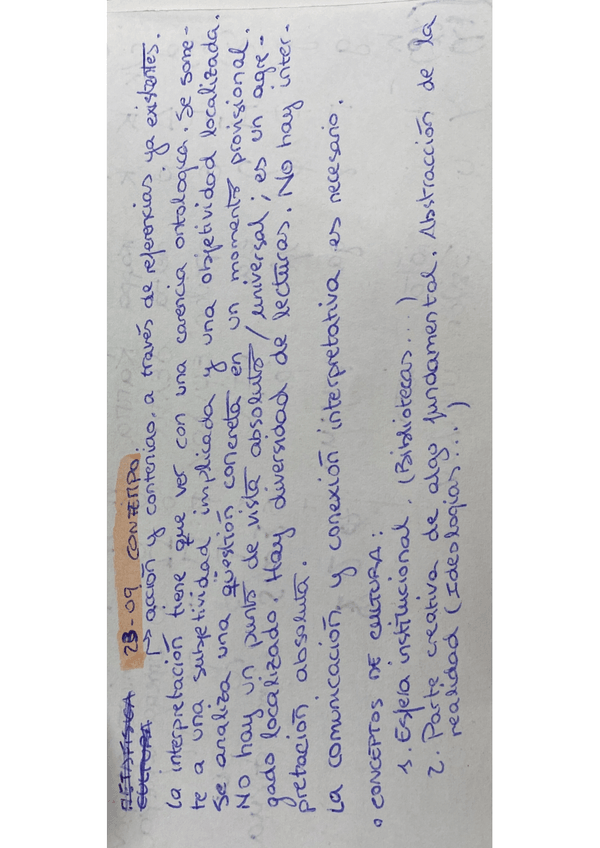 METAFÍSICA 23-09 CONTEMPO.
CULTURA ↳ acción y contenido, a través de referencias ya existentes.
La interpretación tiene que ver con una carencia ontologica. Se some-
te a una subjetividad implicada y una objetividad localizada.
Se analiza una question concreta en un momento provisional.
No hay un punto de vista absoluto / universal; es un agre-
gado localizado. Hay diversidad de lecturas. No hay inter-
pretación absoluta.
La comunicación y conexión interpretativa es necesario.
• CONCEPTOS DE CULTURA:
1. Esfera institucional. (Bibliotecas...)
2. Parte creativa de algo fundamental. Abstracción de la
realidad (Ideologías...)